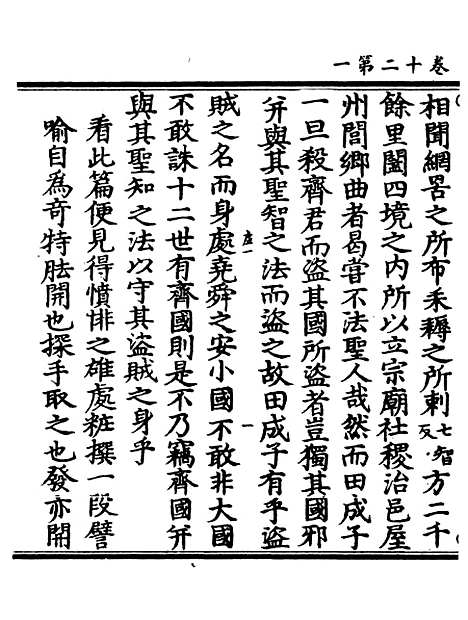 卷十二第一
相聞網罟之所布耒耨之所刺七智反方二千
餘里闔四境之内所以立宗廟社稷治邑屋
州閭鄉曲者曷嘗不法聖人哉然而田成子
一旦殺齊君而盜其國所盜者豈獨其國邪
并與其聖智之法而盜之故田成子有乎盜
賊之名而身處堯舜之安小國不敢非大國
不敢誅十二世有齊國則是不乃竊齊國并
與其聖知之法以守其盜賊之身乎
看此篇便見得憤悱之雄處粧撰一段譬
喻自為奇特胠開也探手取之也發亦開